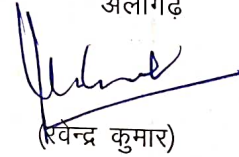 अलीगढ़
(रवेन्द्र कुमार)